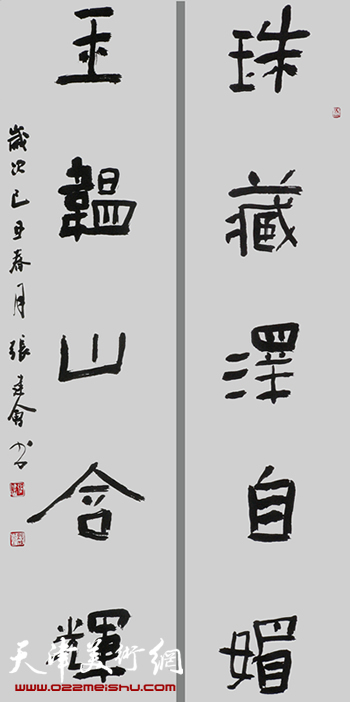 珠藏澤自媚
玉韞山含輝
歲次己丑春月張建會書
天津美術網
www.022meishu.com